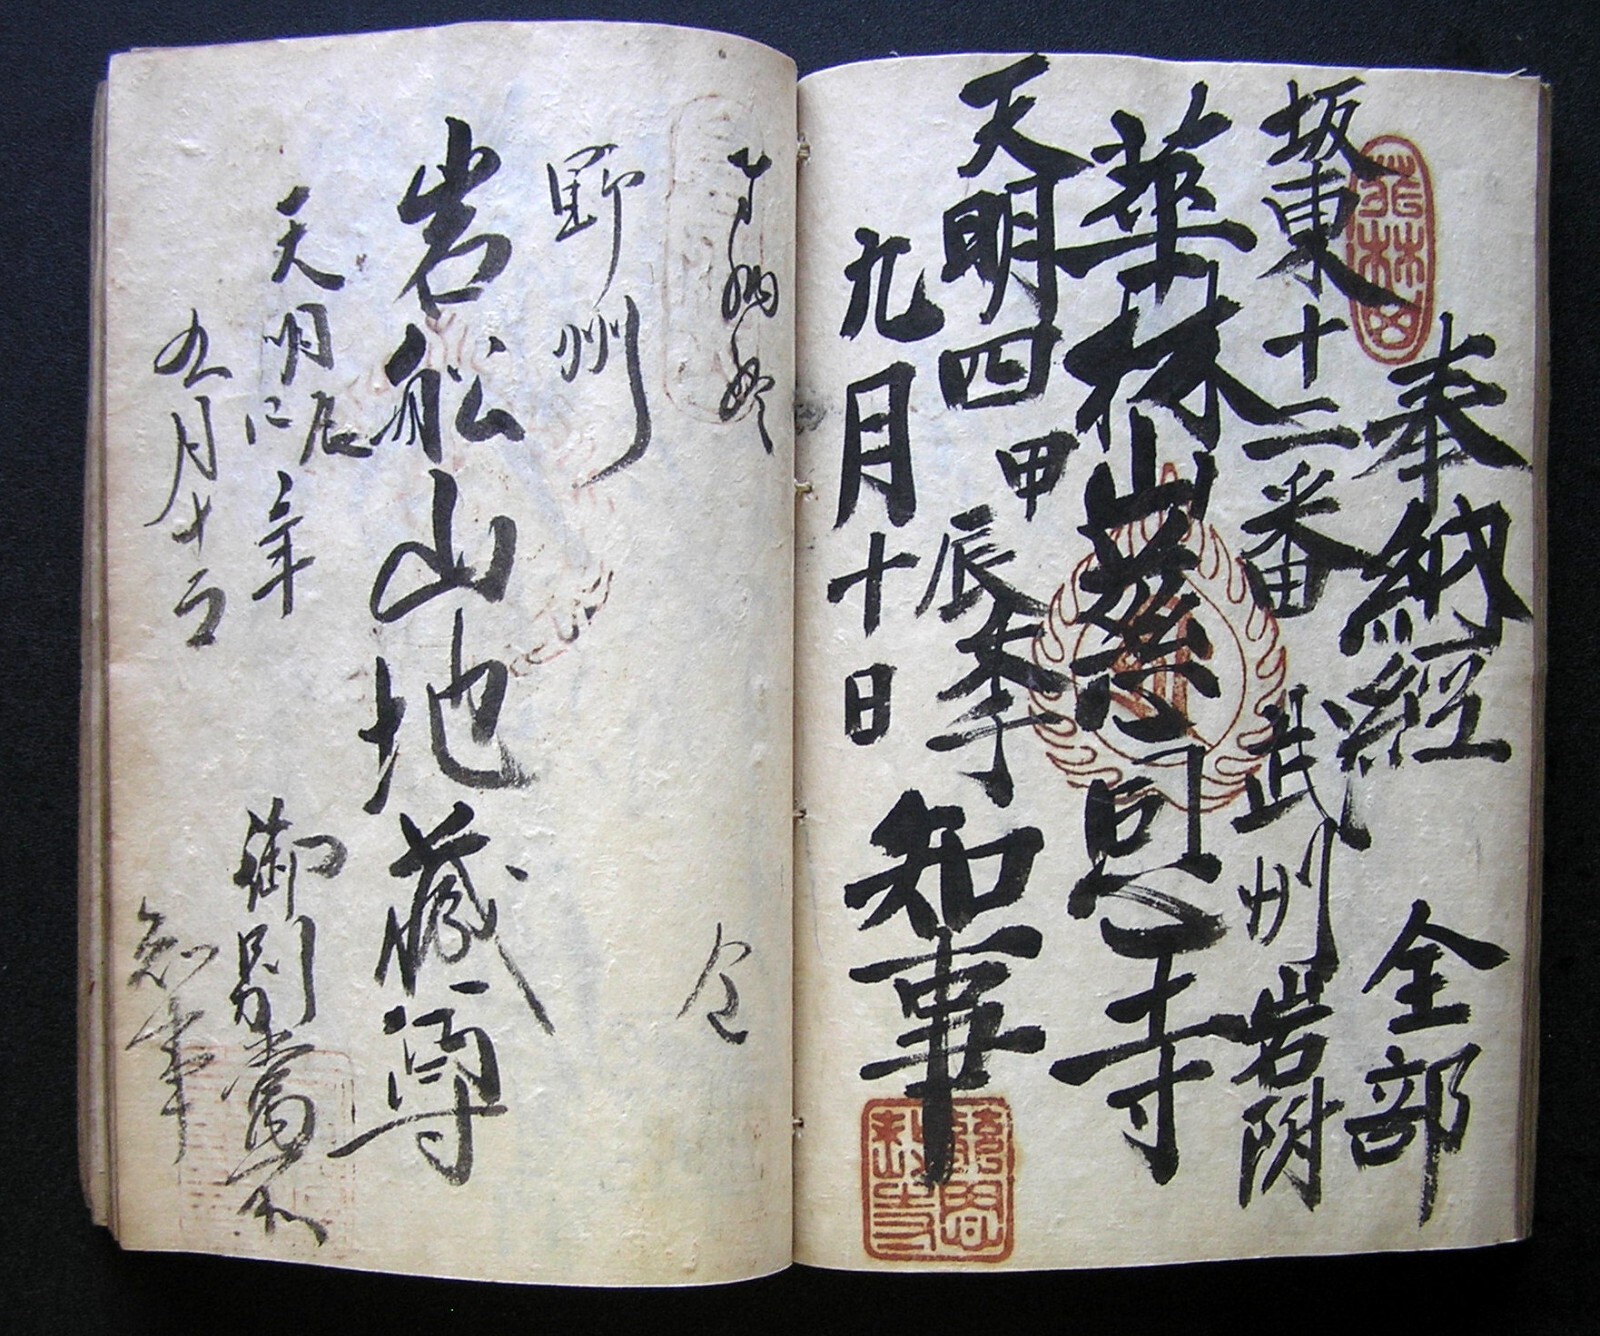 奉納經 全部
坂東十二番 武州岩附
華林山慈恩寺
天明四甲辰季
九月十日 知事
奉納經 仝
野州
岩船山地蔵尊
天明四辰年 御別當
九月十二 知事